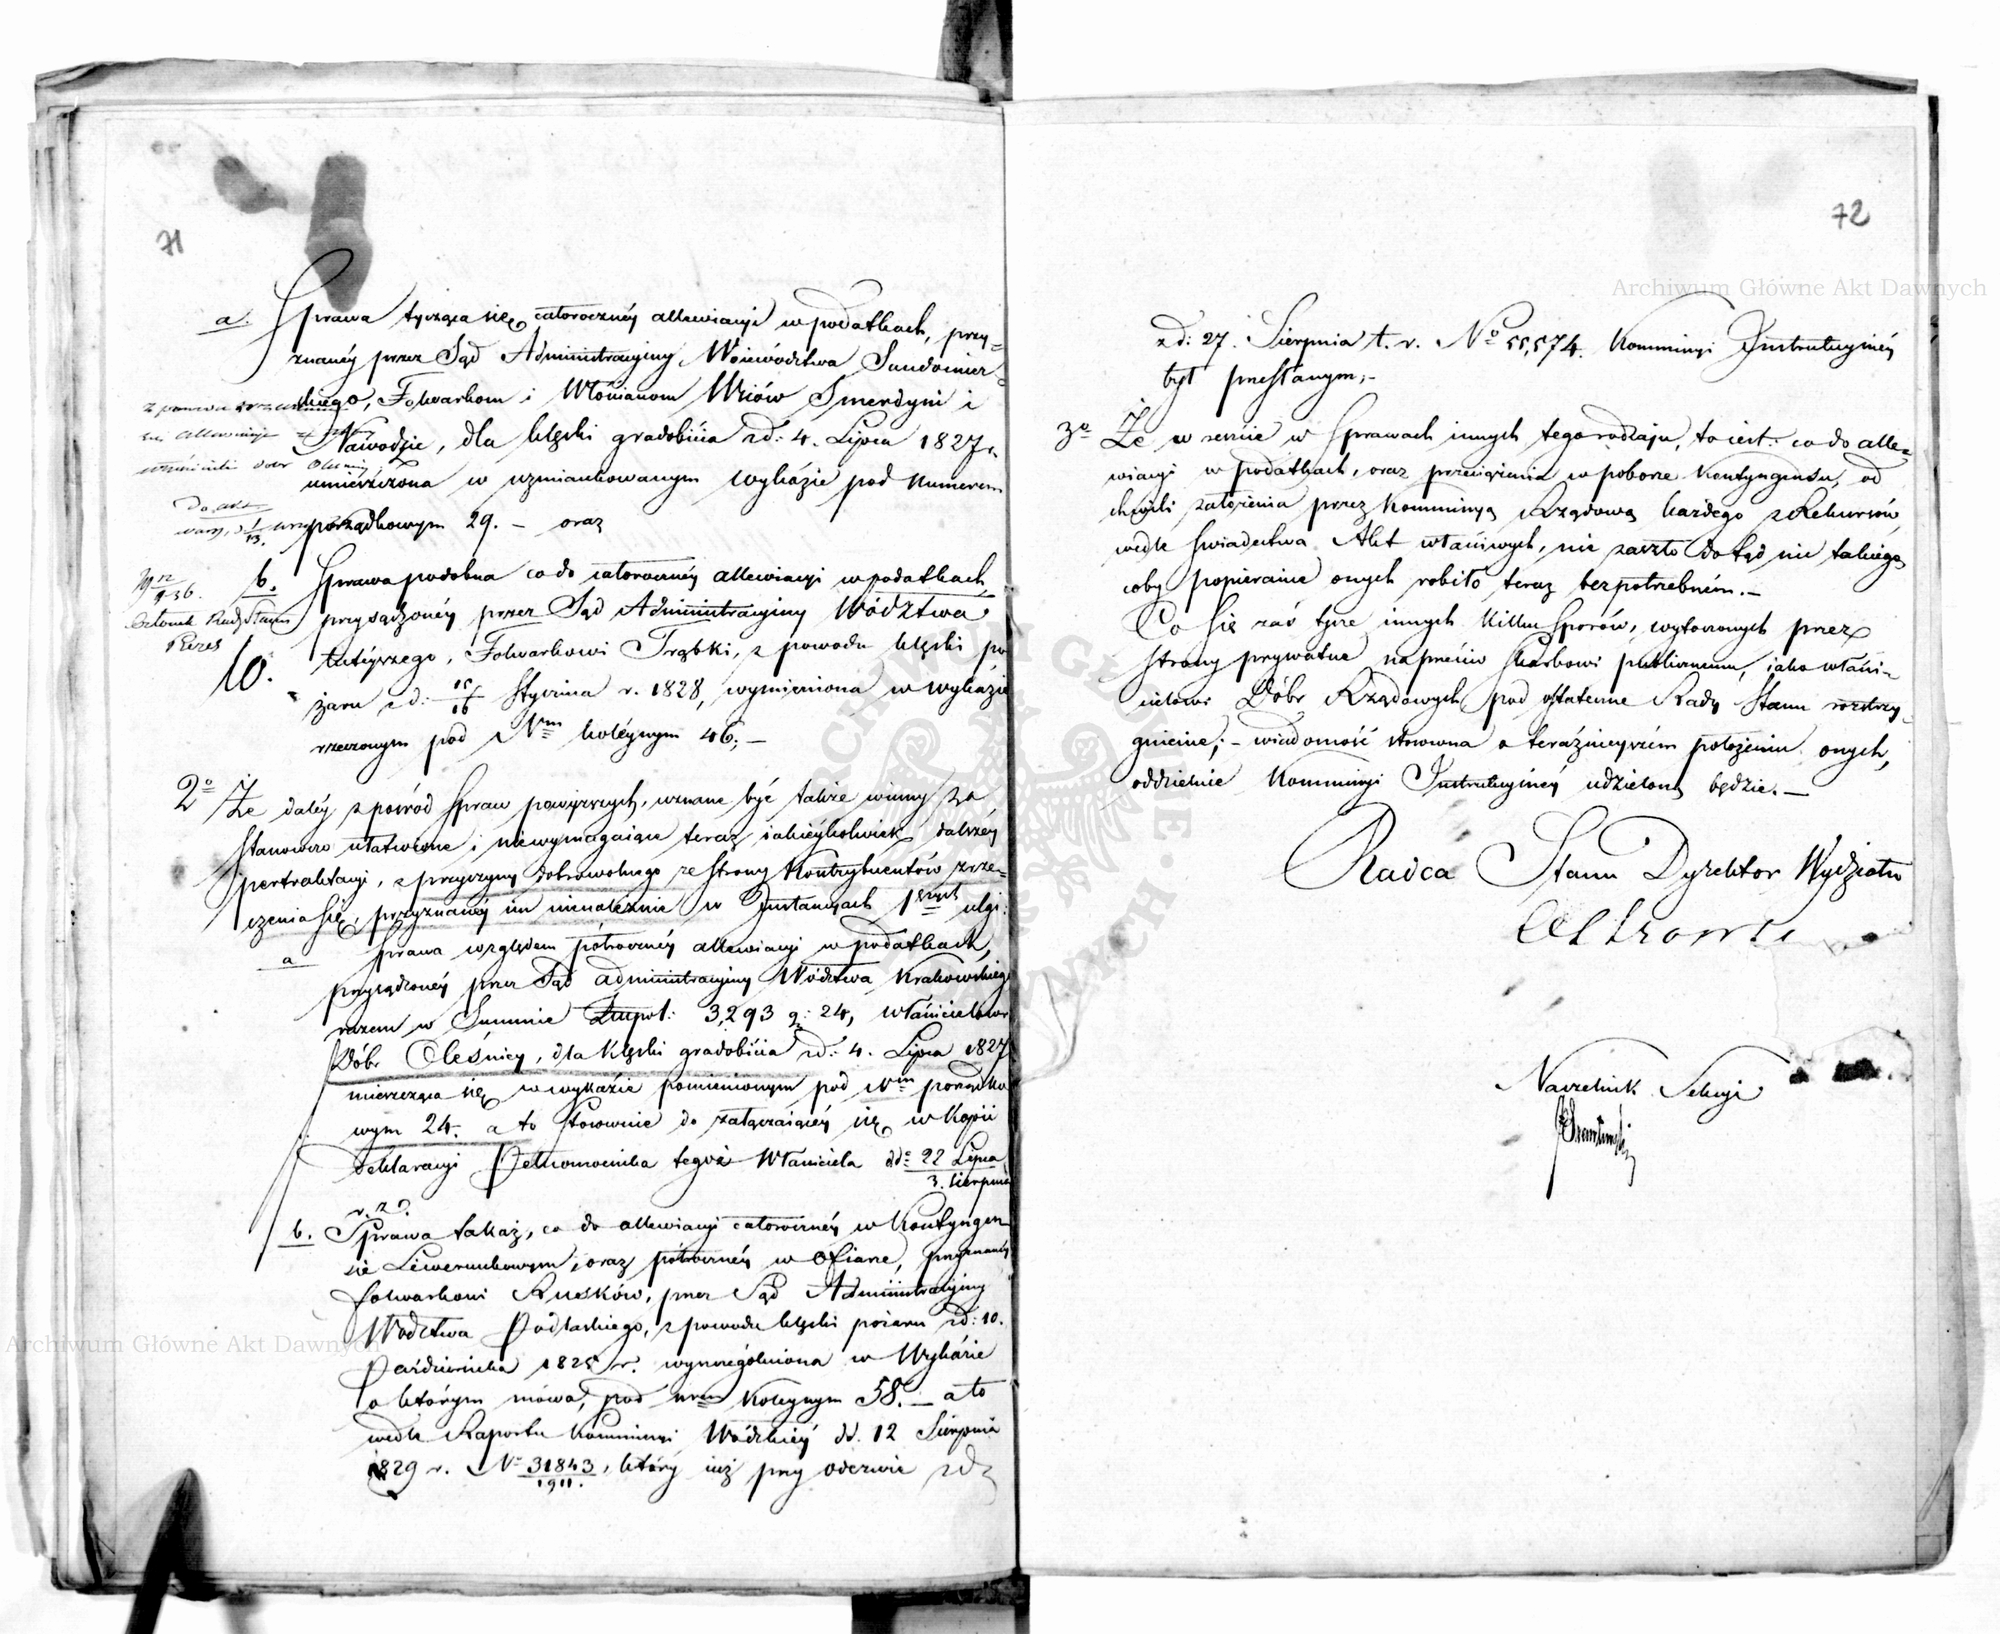 71
a. Sprawa tycząca się całorocznéy allewiacyi w podatkach, przy=
znanéy przez Sąd Administracyiny Woiewództwa Sandomier=
skiego, Folwarkom i Włościanom Wsiów Smerdyni i
Nawodzie, dla klęski gradobicia zd: 4. Lipca 1827 r.
umieszczona w wzmiankowanym wykazie pod Numerem
porządkowym 29. – oraz
b. Sprawa podobna co do całorocznéy allewiacyi w podatkach
przysądzonéy przez Sąd Administracyiny Wództwa
tutéyszego, Folwarkowi Trąbki, z powodu klęski po
żaru zd: 15/16 Stycznia r. 1828, wymieniona w wykazie
rzeczonym pod Nrm koléynym 46; –
do akt
Członek Rady Stanu
Prezes
10.
2o Że daléy z pośród Spraw powyższych, uznane być także winny za
stanowczo ułatwione i niewymagaiące teraz iakieykolwiek dalszéy
pertraktacyi, z przyczyny dobrowolnego ze strony Kontrybuentów zrze=
czenia się, przyznanéy im nienależnie w Instancyach 1szych ulgi:
a Sprawa względem półrocznéy allewiacyi w podatkach,
przysądzonéy przez Sąd administracyiny Wództwa Krakowskiego
razem w Summie Złłpol: 3,293 g: 24, właścicielowi
Dóbr Oleśnicy, dla klęski gradobicia zd: 4. Lipca 1827
mieszcząca się w wykazie pomienionym pod Nrm porządko
wym 24. a to stosownie do załączaiącéy się w Kopii
deklaracyi Pełnomocnika tegoż Właściciela dd: 22 Lipca
3. Sierpnia
r. z.
b. Sprawa takaż, co do allewiacyi całorocznéy w Kontyngen
sie Liwerunkowym, oraz półrocznéy w Ofiarze, przyznanéy
folwarkowi Rusków, przez Sąd Administracyiny
Wództwa Podlaskiego, z powodu klęski pożaru zd: 10.
Października 1825 r. wyszczególniona w Wykazie
o którym mowa, pod nrm Koleynym 58. – a to
wedle Raportu Kommissyi Wódzkiéy dd. 12 Sierpnia
1829 r. No 31843/1911. który iuż przy odezwie
72
zd: 27. Sierpnia t. r. No 55,574. Kommissyi Instrukcyinéy
był przesłanym; –
3o Że w reszcie w Sprawach innych tego rodzaju, to iest: co do alle=
wiacyi w podatkach, oraz przeciążenia w poborze Kontyngensu, od
chwili założenia przez Kommissyą Rządową każdego z Rekursów,
wedle świadectwa Akt właściwych, nie zaszło dotąd nic takiego
coby popieranie onych robiło teraz bezpotrzebném. –
Co się zaś tycze innych kilku Sporów, wytoczonych przez
strony prywatne naprzeciw Skarbowi publicznemu, iako właści=
cielowi Dóbr Rządowych pod ostateczne Rady Stanu rozstrzy=
gnienie; – wiadomość stosowna o teraźnieyszém położeniu onych,
oddzielnie Kommissyi Instrukcyinéy udzieloną będzie. –
Radca Stanu Dyrektor Wydziału
Naczelnik Sekcyi
Archiwum Główne Akt Dawnych
Archiwum Główne Akt Dawnych